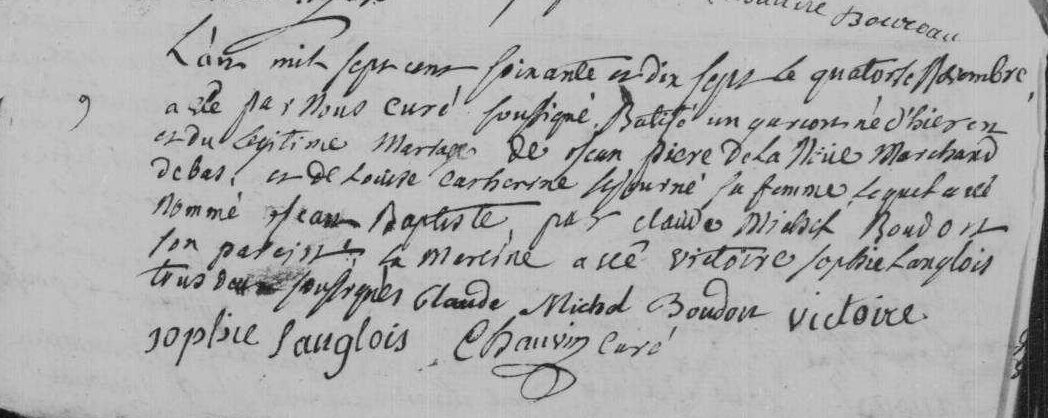 Boureau
L'an mil sept cent soixante et dix sept le quatorse Novembre
a ete par nous curé soussigné Batisé un garcon né d'hier en
et du Legitime Mariage de Jean piere De La Niüe Marchand
debas, et de Louise Catherine sejourné sa femme, lequel a eté
nommé Jean Baptiste, par claude Michel Boudon
son parein: la Mareine a eté victoire sophie Langlois
tous deux soussignés Claude Michel Boudon victoire
sophie Langlois Chauvin Curé